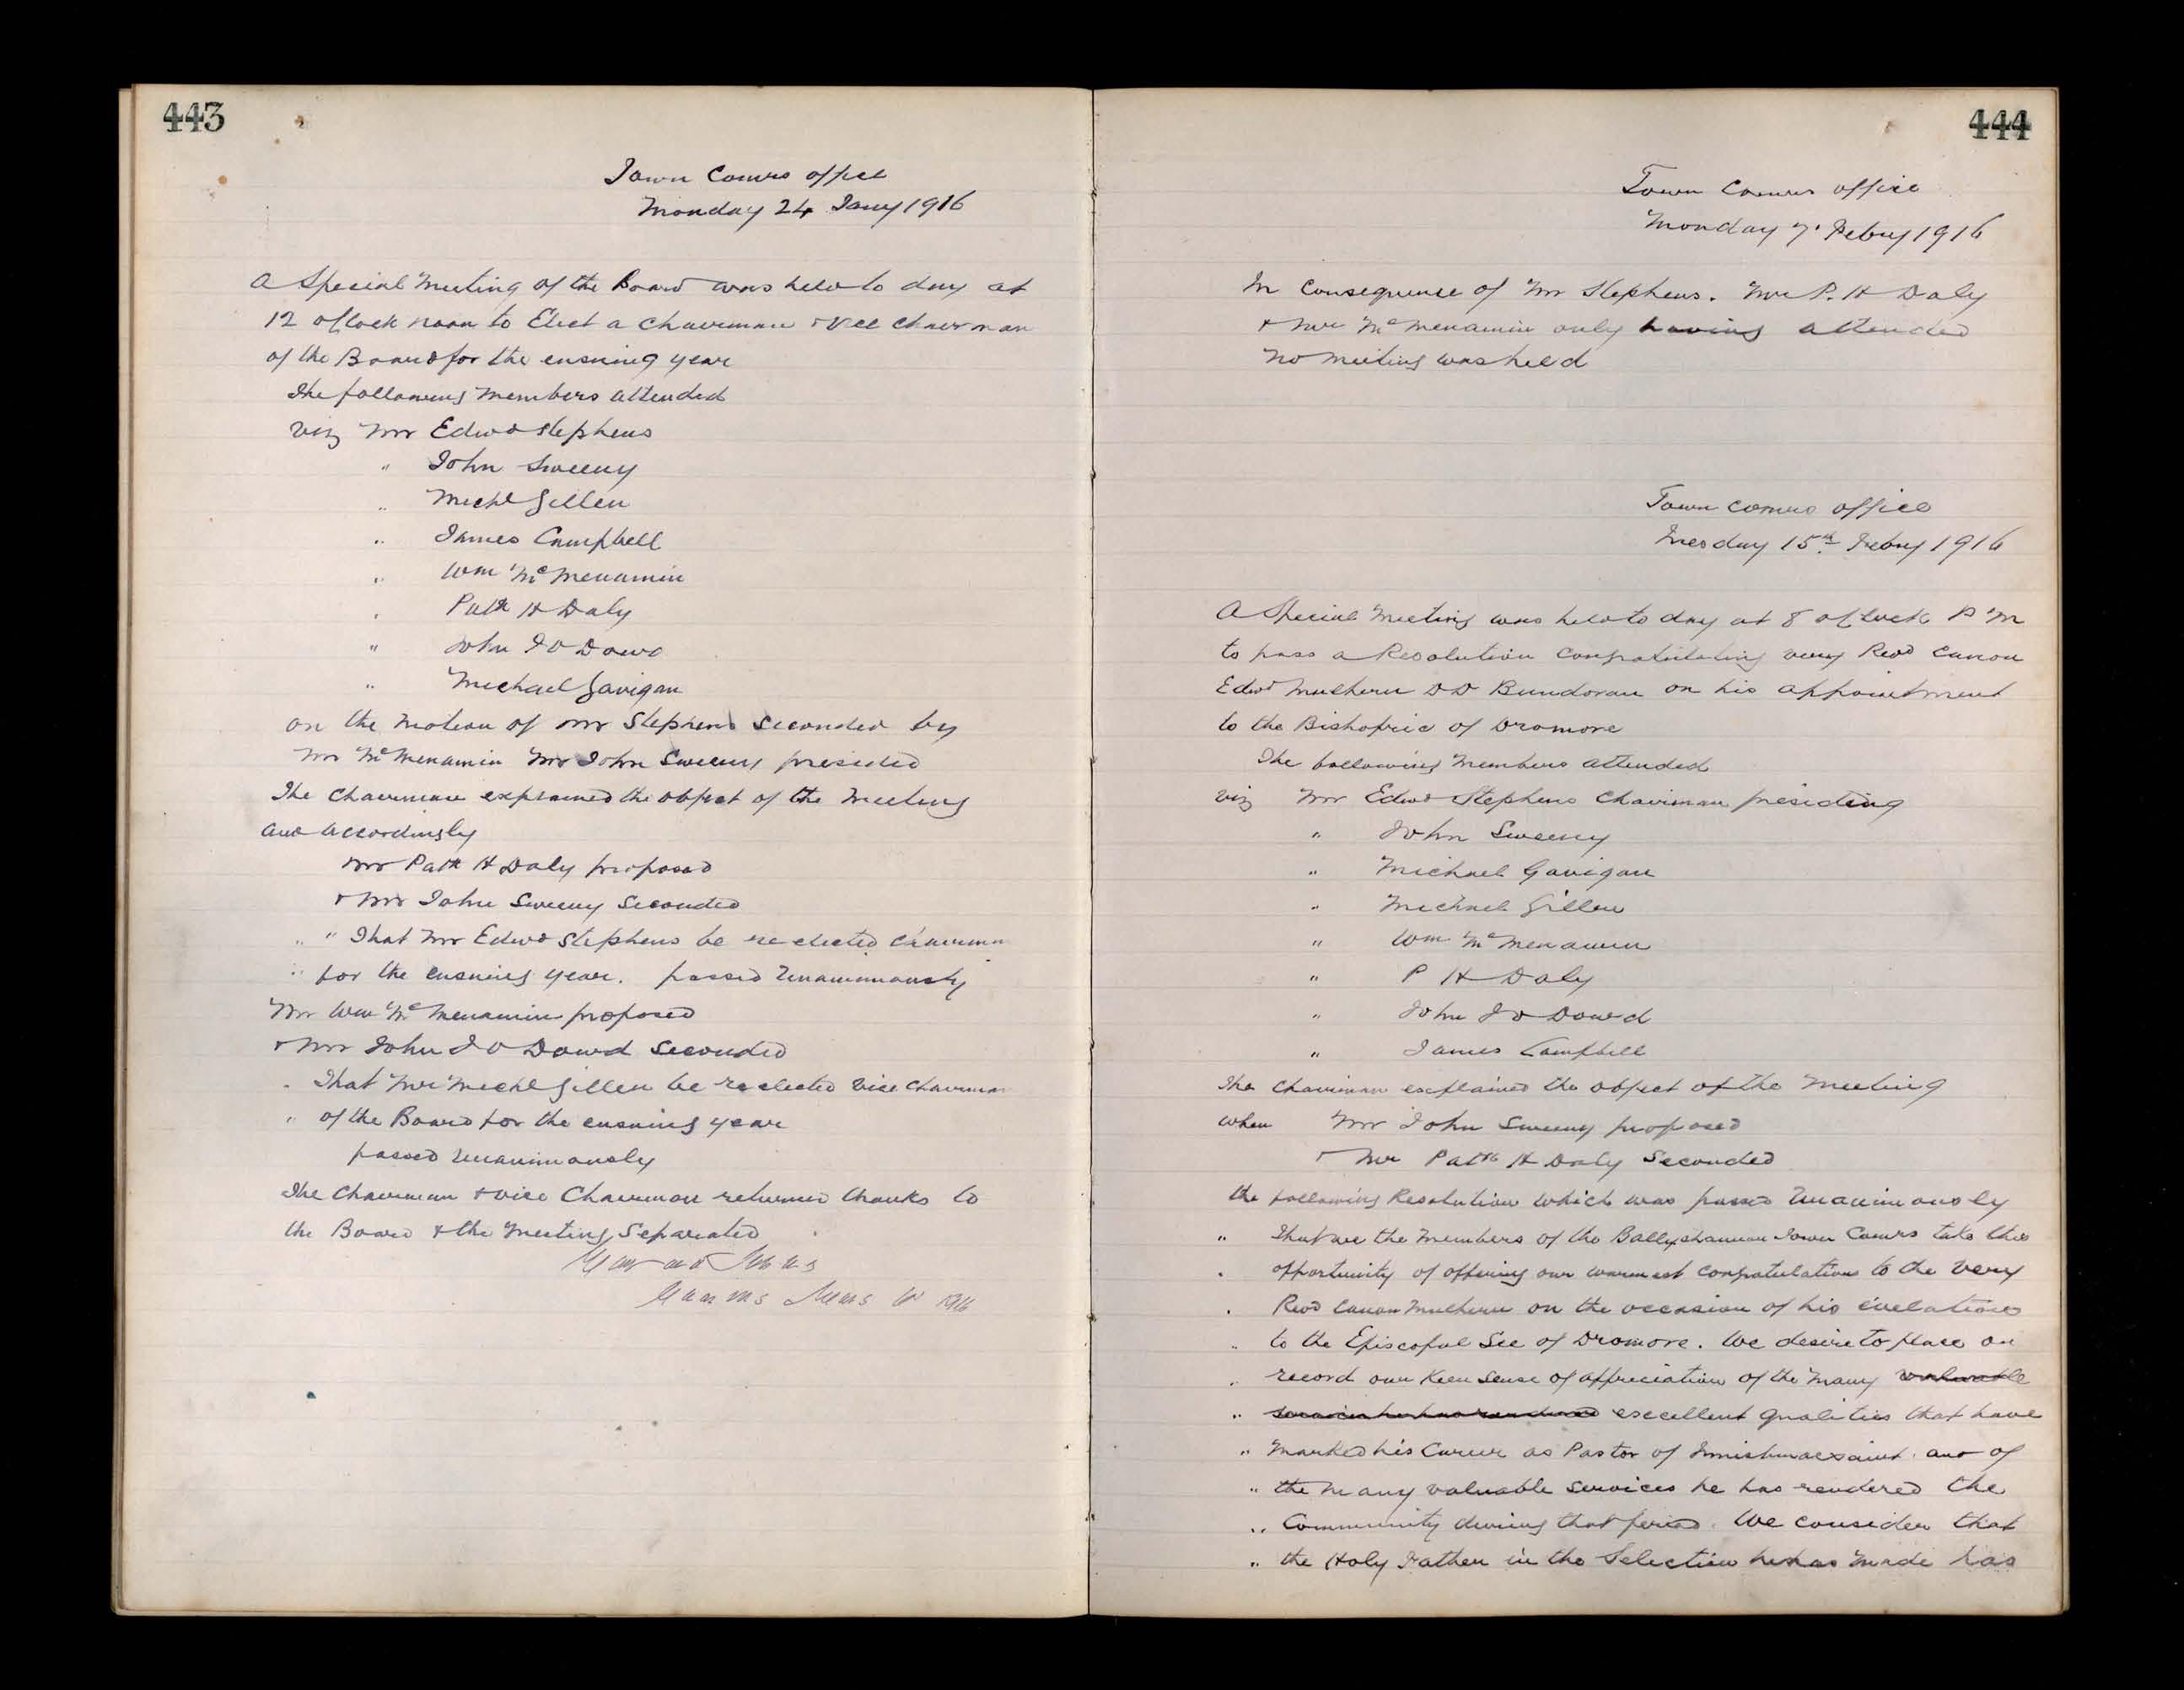 443
Town Comrs office
Monday 24 Jany 1916
A Special Meeting of the Board was held to day at
12 oClock noon to Elect a Chairman & Vice Chairman
of the Board for the ensuing year
The following Members attended
viz Mr Edwd Stephens
" John Sweeny
" Michl Gillen
" James Campbell
" Wm McMenamin
" Patk H Daly
" John J O Dowd
" Michael Gavigan
on the Motion of Mr Stephens Seconded by
Mr McMenamin Mr John Sweeny presided
The Chairman explained the object of the Meeting
and accordingly
Mr Patk H Daly proposed
& Mr John Sweeny Seconded
" " That Mr Edwd Stephens be re elected Chairman
" for the ensuing year. passed Unanimously
Mr Wm McMenamin proposed
& Mr John J O Dowd Seconded
" That Mr Michl Gillen be re elected Vice Chairman
" of the Board for the ensuing year
passed Unanimously
The Chairman & Vice Chairman returned thanks to
the Board & the Meeting Separated
1916
444
Town Comrs office
Monday 7. Febry 1916
In Consequence of Mr Stephens. Mr P. H Daly
& Mr McMenamin only having attended
No Meeting was held
Town Comrs office
Tuesday 15th Febry 1916
A Special Meeting was held to day at 8 oClock P M
to pass a Resolution Congratulating very Revd Canon
Edwd Mulhern DD Bundoran on his appointment
to the Bishopric of Dromore
The following Members attended
viz Mr Edwd Stephens Chairman presiding
" John Sweeny
" Michael Gavigan
" Michael Gillen
" Wm McMenamin
" P H Daly
" John J O Dowd
" James Campbell
The Chairman explained the object of the Meeting
when Mr John Sweeny proposed
& Mr Patk H Daly Seconded
the following Resolution which was passed Unanimously
" That we the Members of the Ballyshannon Town Comrs take this
" opportunity of offering our warmest congratulations to the Very
" Revd Canon Mulhern on the occasion of his elevation
" to the Episcopal See of Dromore. We desire to place on
" record our Keen Sense of appreciation of the many valuable
" services he has rendered excellent qualities that have
" Marked his Career as Pastor of Innishmacsaint. and of
" the many valuable Services he has rendered the
" Community during that period. We consider that
" the Holy Father in the Selection he has made has